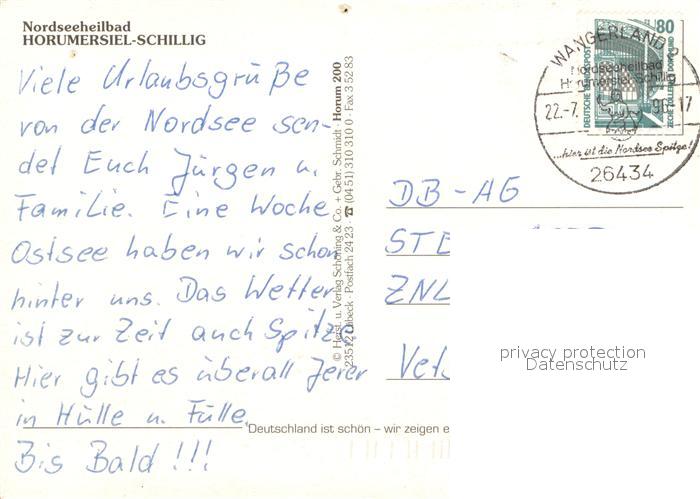 Nordseeheilbad
HORUMERSIEL-SCHILLIG
Viele Urlaubsgrüße
von der Nordsee sen-
det Euch Jürgen u.
Familie. Eine Woche
Ostsee haben wir schon
hinter uns. Das Wetter
ist zur Zeit auch Spitze
Hier gibt es überall Jever
in Hülle u. Fülle.
Bis Bald !!!
Deutschland ist schön – wir zeigen e
© Herst. u. Verlag Schöning & Co. + Gebr. Schmidt · Horum 200
23512 Lübeck · Postfach 24 23 · ☎ (04 51) 310 310 0 · Fax 3 52 83
WANGERLAND
Nordseeheilbad
Horumersiel-Schillig
22.-7.
-17
...hier ist die Nordsee Spitze!
26434
80
DEUTSCHE BUNDESPOST
ZECHE ZOLLERN II DORTMUND
DB - AG
STE
ZNL
privacy protection
Datenschutz